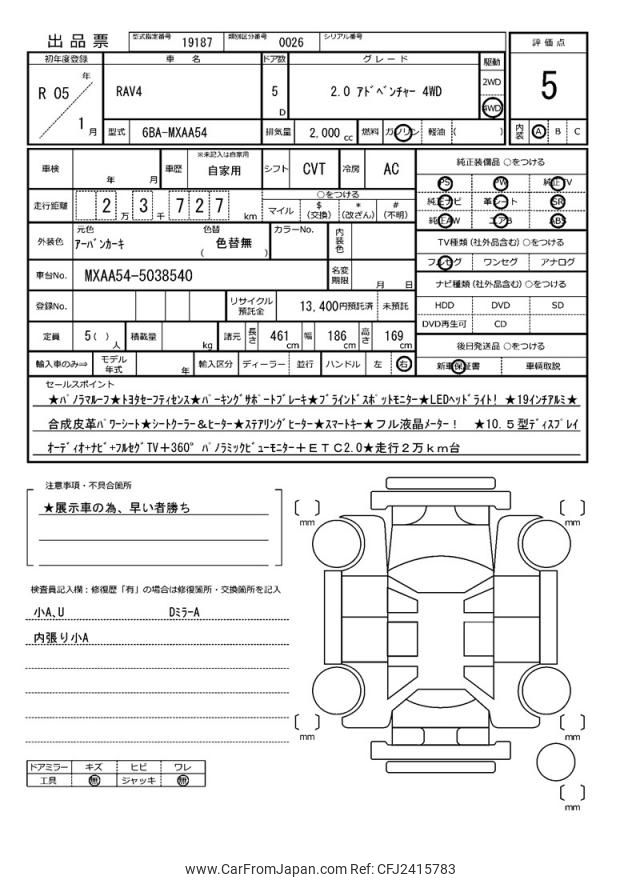 出品票 型式指定番号 19187 類別区分番号 0026 シリアル番号
評価点
5
内装 A B C
初年度登録 車名 ドア数 グレード 駆動
R 05 年 1 月
RAV4 5 D 2.0 アドベンチャー 4WD
2WD
4WD
型式 6BA-MXAA54 排気量 2,000 cc 燃料 ガソリン 軽油 ( )
車検 年 月 車歴 ※未記入は自家用 自家用 シフト CVT 冷房 AC
走行距離 2 万 3 千 7 2 7 km
○をつける
マイル $ (交換) * (改ざん) # (不明)
外装色 元色 アーバンカーキ 色替 色替無 ( ) カラーNo. 内装色
車台No. MXAA54-5038540 名変期限 月 日
登録No. リサイクル預託金 13,400円預託済 未預託
定員 5( ) 人 積載量 kg 諸元 長さ 461 cm 幅 186 cm 高さ 169 cm
輸入車のみ⇨ モデル年式 年 輸入区分 ディーラー 並行 ハンドル 左 右
純正装備品 ○をつける
PS PW 純正TV
純正ナビ 革シート SR
純正AW エアB ABS
TV種類 (社外品含む) ○をつける
フルセグ ワンセグ アナログ
ナビ種類 (社外品含む) ○をつける
HDD DVD SD
DVD再生可 CD
後日発送品 ○をつける
新車保証書 車輌取説
セールスポイント
★パノラマルーフ★トヨタセーフティセンス★パーキングサポートブレーキ★ブラインドスポットモニター★LEDヘッドライト! ★19インチアルミ★
合成皮革パワーシート★シートクーラー&ヒーター★ステアリングヒーター★スマートキー★フル液晶メーター! ★10.5型ディスプレイ
オーディオ+ナビ+フルセグTV+360° パノラミックビューモニター+ETC2.0★走行2万km台
注意事項・不具合箇所
★展示車の為、早い者勝ち
検査員記入欄:修復歴「有」の場合は修復箇所・交換箇所を記入
小A、U DミラーA
内張り小A
ドアミラー キズ ヒビ ワレ
工具 無 ジャッキ 無
mm
mm
mm
mm
mm
www.CarFromJapan.com Ref: CFJ2415783